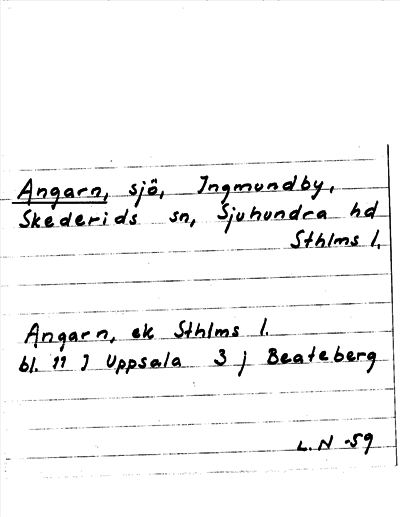 Angarn, sjö, Ingmundby,
Skederids sn, Sjuhundra hd
Sthlms l.
Angarn, ek Sthlms l.
bl. 11 I Uppsala 3 j Beateberg
L. N -59